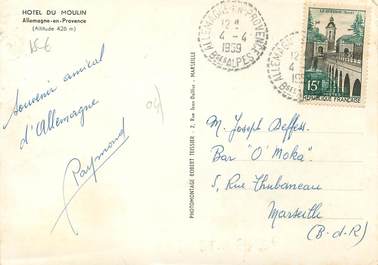 HOTEL DU MOULIN
Allemagne-en-Provence
(Altitude 426 m)
15€
Souvenir amical
d'Allemagne
Raymond
04
PHOTOMONTAGE ROBERT TEISSIER - 7, Rue Jean-Dollfus - MARSEILLE
ALLEMAGNE-EN-PROVENCE
12 H
4 - 4
1959
BSES ALPES
15F
REPUBLIQUE FRANÇAISE
M. Joseph Deffess
Bar "O'Moka"
5, Rue Thubaneau
Marseille
(B-d-R)